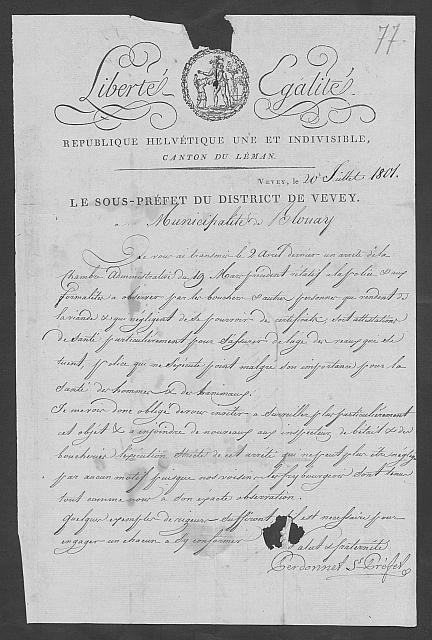 77.
Liberté. Egalité.
REPUBLIQUE HELVÉTIQUE UNE ET INDIVISIBLE,
CANTON DU LÉMAN.
VEVEY, le 20 Juillet 1801.
LE SOUS-PRÉFET DU DISTRICT DE VEVEY.
a Municipalité de Blonay
Je vous ai transmis le 2 Avril dernier un arreté de la
Chambre Administrative du 19 Mars précédent relatif a la police & aux
formalités a observer par les bouchers & autres personnes qui vendent de
la viande & qui négligent de se pourvoir de certificats, soit attestations
de Santé particulièrement pour s'assurer de l'age des veaux que se
tuent, police qui ne s'exécute point malgré son importance pour la
Santé des hommes & des hanimaux.
Je me vois donc obligé de vous inviter a Surveiller plus particulièrement
cet objet & a enjoindre de nouveaux aux inspecteur de bétail & des
boucheries l'exécution stricte de cet arreté qui ne peut plus etre néglige
par aucun motif puisque nos voisins les fribourgeois sont tenus
tout comme nous a son exacte observation.
Quelques exemples de rigueur suffiront s'il est nécessaire pour
engager un chacun a s'y conformer Salut & fraternité
Perdonnet Ss Préfet